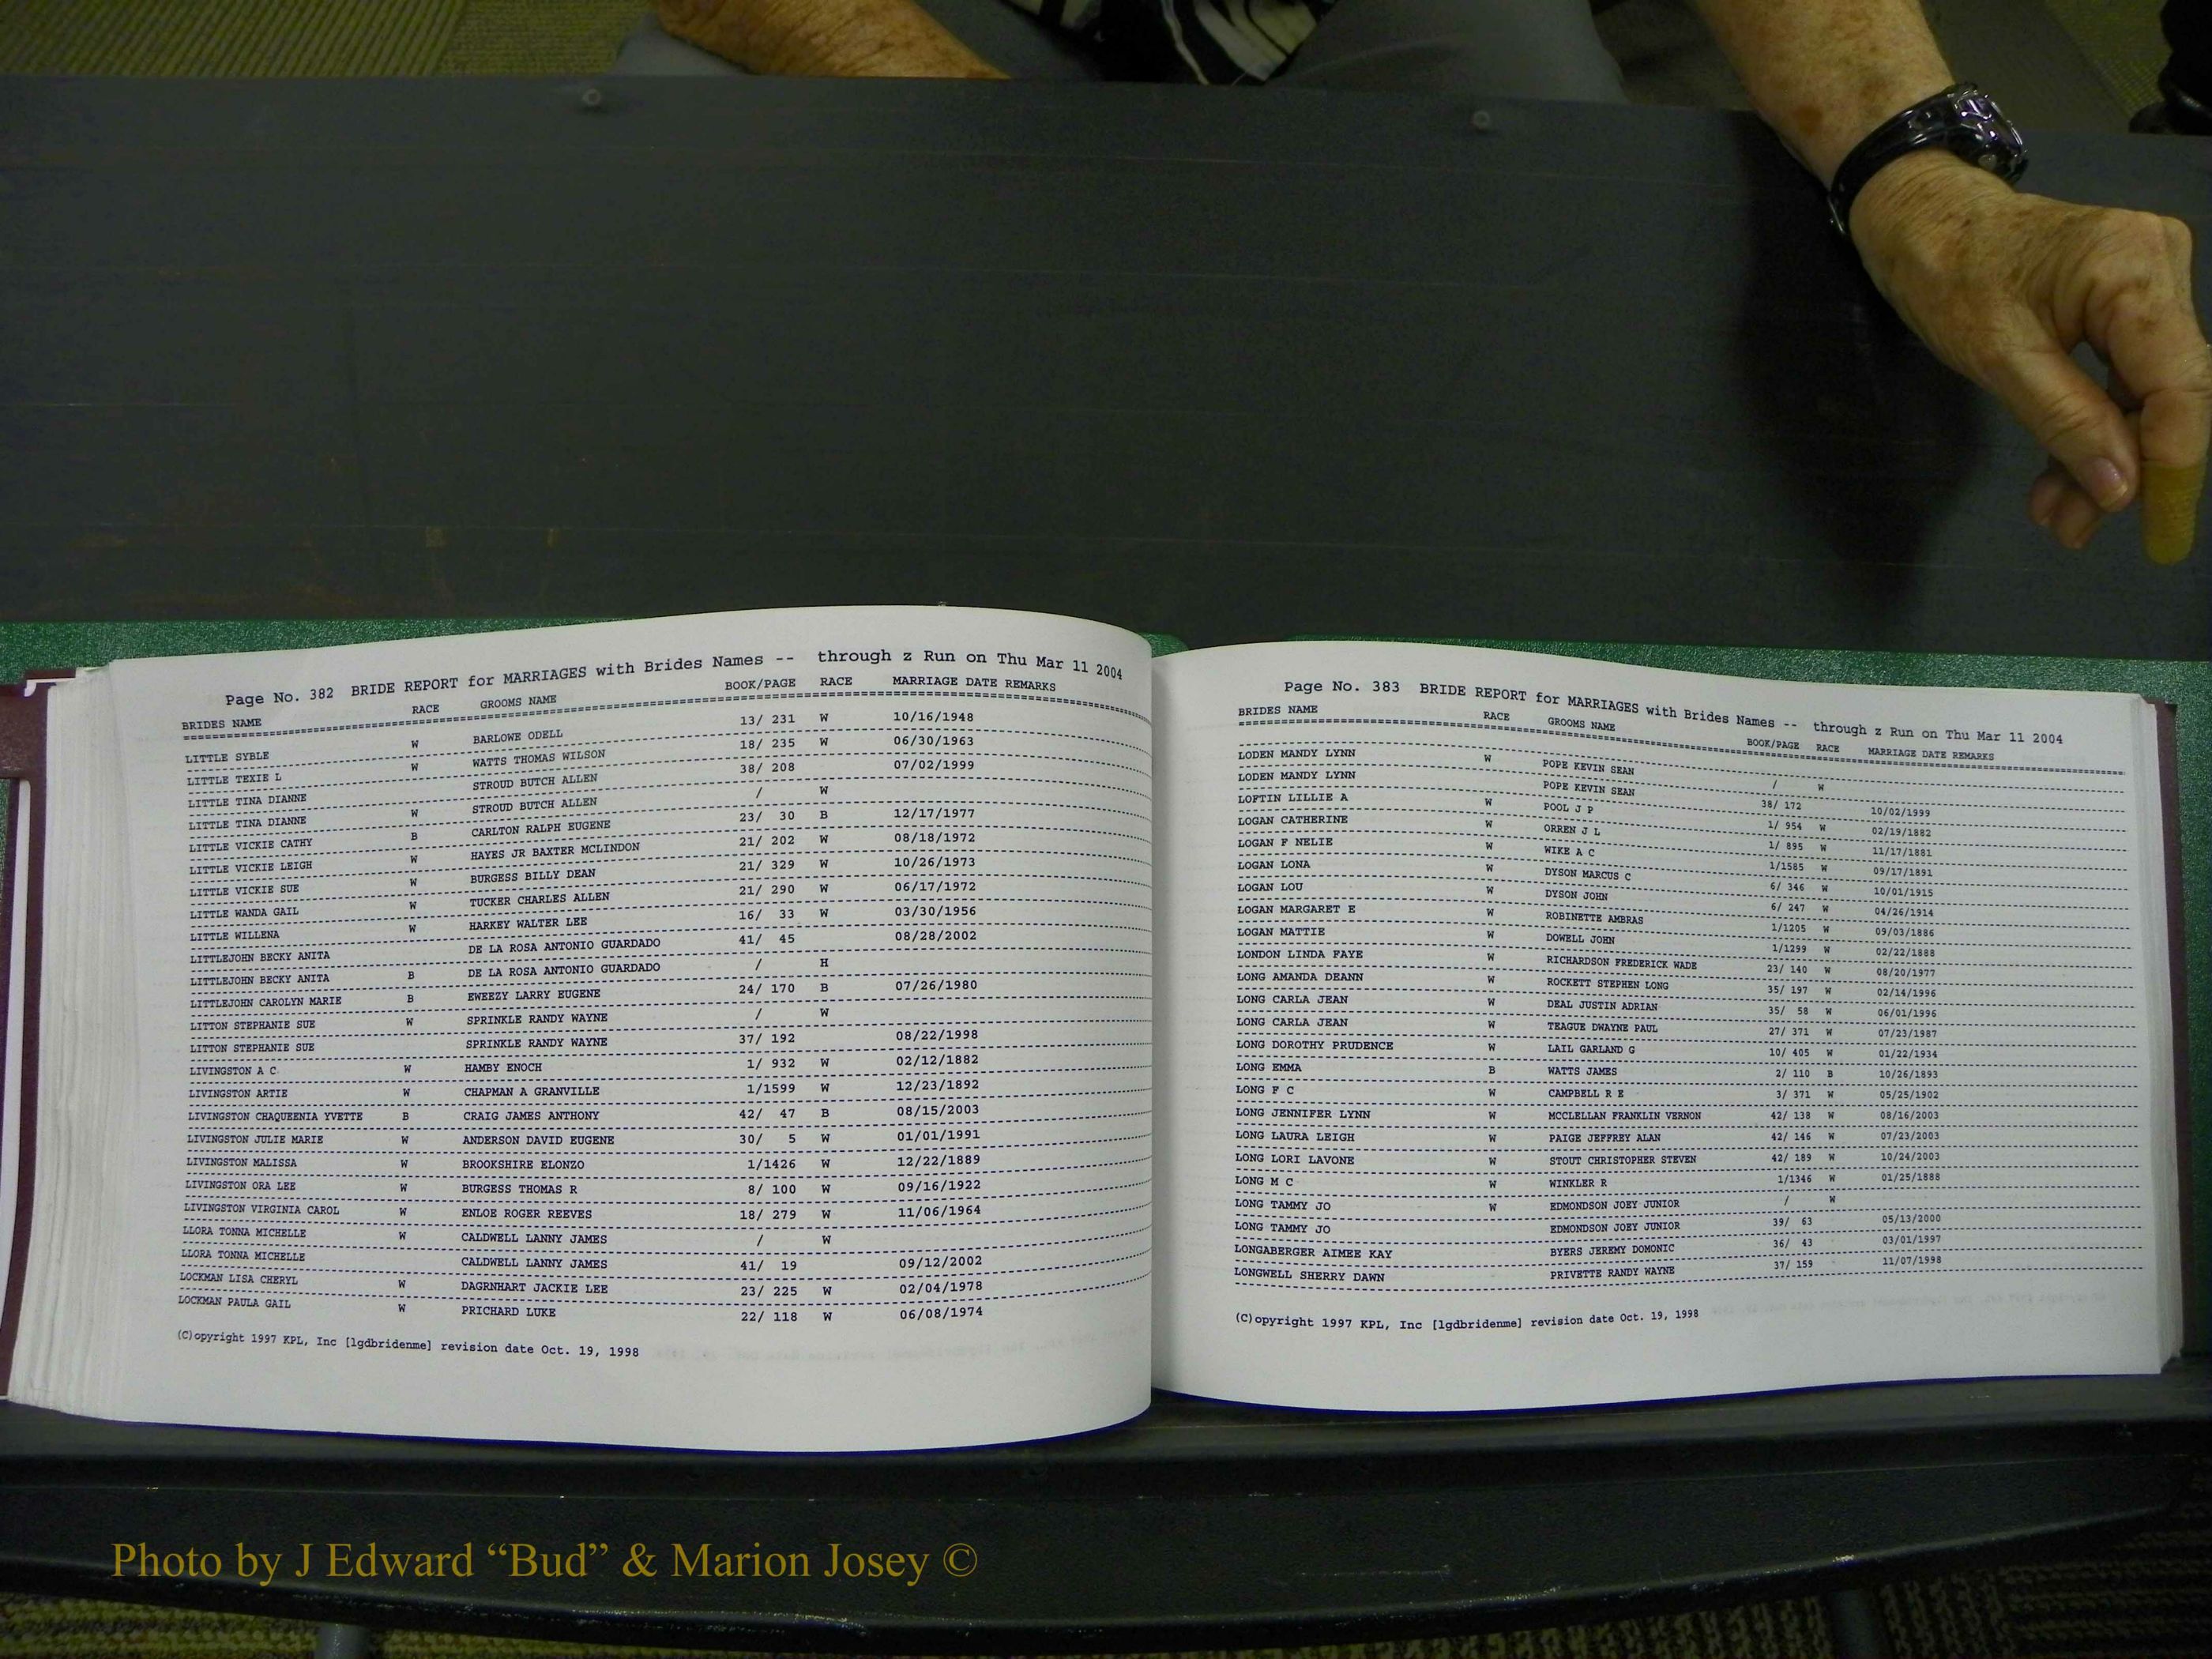 Page No. 382 BRIDE REPORT for MARRIAGES with Brides Names -- through z Run on Thu Mar 11 2004
BRIDES NAME RACE GROOMS NAME BOOK/PAGE RACE MARRIAGE DATE REMARKS
LITTLE SYBLE W BARLOWE ODELL 13/ 231 W 10/16/1948
LITTLE TEXIE L W WATTS THOMAS WILSON 18/ 235 W 06/30/1963
LITTLE TINA DIANNE STROUD BUTCH ALLEN 38/ 208 07/02/1999
LITTLE TINA DIANNE W STROUD BUTCH ALLEN / W
LITTLE VICKIE CATHY B CARLTON RALPH EUGENE 23/ 30 B 12/17/1977
LITTLE VICKIE LEIGH W HAYES JR BAXTER MCLINDON 21/ 202 W 08/18/1972
LITTLE VICKIE SUE W BURGESS BILLY DEAN 21/ 329 W 10/26/1973
LITTLE WANDA GAIL W TUCKER CHARLES ALLEN 21/ 290 W 06/17/1972
LITTLE WILLENA W HARKEY WALTER LEE 16/ 33 W 03/30/1956
LITTLEJOHN BECKY ANITA DE LA ROSA ANTONIO GUARDADO 41/ 45 08/28/2002
LITTLEJOHN BECKY ANITA B DE LA ROSA ANTONIO GUARDADO / H
LITTLEJOHN CAROLYN MARIE B EWEEZY LARRY EUGENE 24/ 170 B 07/26/1980
LITTON STEPHANIE SUE W SPRINKLE RANDY WAYNE / W
LITTON STEPHANIE SUE SPRINKLE RANDY WAYNE 37/ 192 08/22/1998
LIVINGSTON A C W HAMBY ENOCH 1/ 932 W 02/12/1882
LIVINGSTON ARTIE W CHAPMAN A GRANVILLE 1/1599 W 12/23/1892
LIVINGSTON CHAQUEENIA YVETTE B CRAIG JAMES ANTHONY 42/ 47 B 08/15/2003
LIVINGSTON JULIE MARIE W ANDERSON DAVID EUGENE 30/ 5 W 01/01/1991
LIVINGSTON MALISSA W BROOKSHIRE ELONZO 1/1426 W 12/22/1889
LIVINGSTON ORA LEE W BURGESS THOMAS R 8/ 100 W 09/16/1922
LIVINGSTON VIRGINIA CAROL W ENLOE ROGER REEVES 18/ 279 W 11/06/1964
LLORA TONNA MICHELLE W CALDWELL LANNY JAMES / W
LLORA TONNA MICHELLE CALDWELL LANNY JAMES 41/ 19 09/12/2002
LOCKMAN LISA CHERYL W DAGRNHART JACKIE LEE 23/ 225 W 02/04/1978
LOCKMAN PAULA GAIL W PRICHARD LUKE 22/ 118 W 06/08/1974
(C)opyright 1997 KPL, Inc [lgdbridenme] revision date Oct. 19, 1998
Page No. 383 BRIDE REPORT for MARRIAGES with Brides Names -- through z Run on Thu Mar 11 2004
BRIDES NAME RACE GROOMS NAME BOOK/PAGE RACE MARRIAGE DATE REMARKS
LODEN MANDY LYNN W POPE KEVIN SEAN / W
LODEN MANDY LYNN POPE KEVIN SEAN 38/ 172 10/02/1999
LOFTIN LILLIE A W POOL J P 1/ 954 W 02/19/1882
LOGAN CATHERINE W ORREN J L 1/ 895 W 11/17/1881
LOGAN F NELIE W WIKE A C 1/1585 W 09/17/1891
LOGAN LONA W DYSON MARCUS C 6/ 346 W 10/01/1915
LOGAN LOU W DYSON JOHN 6/ 247 W 04/26/1914
LOGAN MARGARET E W ROBINETTE AMBRAS 1/1205 W 09/03/1886
LOGAN MATTIE W DOWELL JOHN 1/1299 W 02/22/1888
LONDON LINDA FAYE W RICHARDSON FREDERICK WADE 23/ 140 W 08/20/1977
LONG AMANDA DEANN W ROCKETT STEPHEN LONG 35/ 197 W 02/14/1996
LONG CARLA JEAN W DEAL JUSTIN ADRIAN 35/ 58 W 06/01/1996
LONG CARLA JEAN W TEAGUE DWAYNE PAUL 27/ 371 W 07/23/1987
LONG DOROTHY PRUDENCE W LAIL GARLAND G 10/ 405 W 01/22/1934
LONG EMMA B WATTS JAMES 2/ 110 B 10/26/1893
LONG F C W CAMPBELL R E 3/ 371 W 05/25/1902
LONG JENNIFER LYNN W MCCLELLAN FRANKLIN VERNON 42/ 138 W 08/16/2003
LONG LAURA LEIGH W PAIGE JEFFREY ALAN 42/ 146 W 07/23/2003
LONG LORI LAVONE W STOUT CHRISTOPHER STEVEN 42/ 189 W 10/24/2003
LONG M C W WINKLER R 1/1346 W 01/25/1888
LONG TAMMY JO W EDMONDSON JOEY JUNIOR / W
LONG TAMMY JO EDMONDSON JOEY JUNIOR 39/ 63 05/13/2000
LONGABERGER AIMEE KAY BYERS JEREMY DOMONIC 36/ 43 03/01/1997
LONGWELL SHERRY DAWN PRIVETTE RANDY WAYNE 37/ 159 11/07/1998
(C)opyright 1997 KPL, Inc [lgdbridenme] revision date Oct. 19, 1998
Photo by J Edward “Bud” & Marion Josey ©